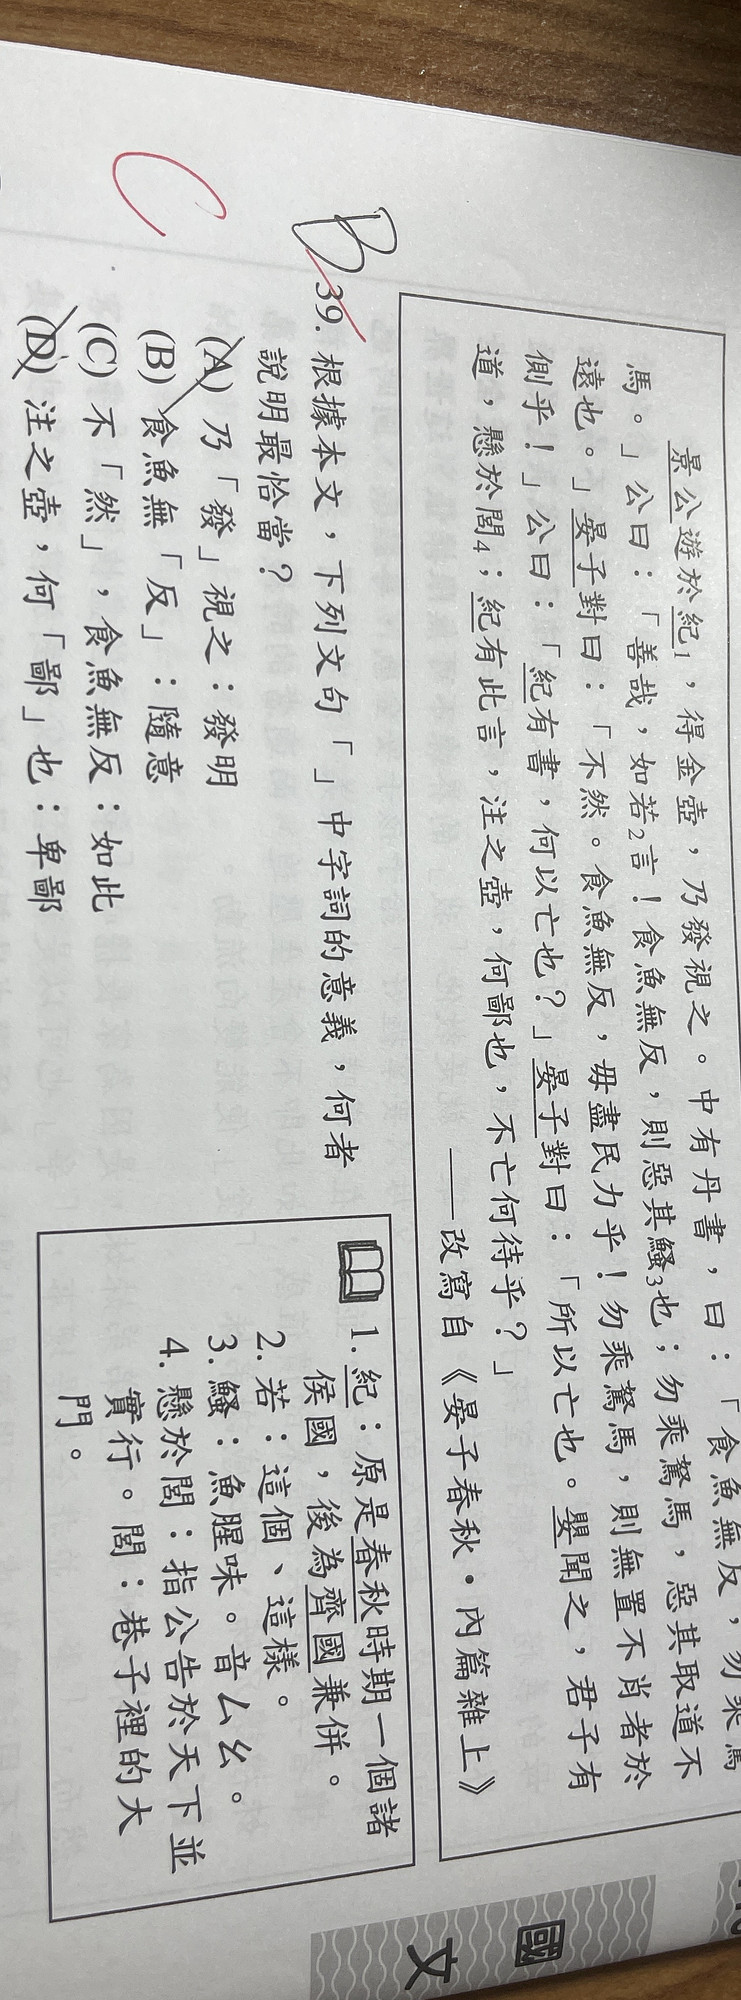 景公遊於紀1，得金壺，乃發視之。中有丹書，曰：「食魚無反，勿乘駑
馬。」公曰：「善哉，如若2言！食魚無反，則惡其鱢3也；勿乘駑馬，惡其取道不
遠也。」晏子對曰：「不然。食魚無反，毋盡民力乎！勿乘駑馬，則無置不肖者於
側乎！」公曰：「紀有書，何以亡也？」晏子對曰：「所以亡也。嬰聞之，君子有
道，懸於閭4；紀有此言，注之壺，何鄙也，不亡何待乎？」
——改寫自《晏子春秋•內篇雜上》
B
C
39. 根據本文，下列文句「」中字詞的意義，何者
說明最恰當？
(A) 乃「發」視之：發明
(B) 食魚無「反」：隨意
(C) 不「然」，食魚無反：如此
(D) 注之壺，何「鄙」也：卑鄙
1. 紀：原是春秋時期一個諸
侯國，後為齊國兼併。
2. 若：這個、這樣。
3. 鱢：魚腥味。音ㄙㄠ。
4. 懸於閭：指公告於天下並
實行。閭：巷子裡的大
門。
國
文